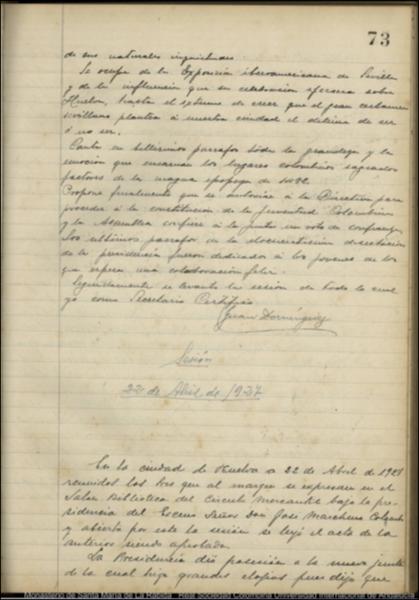 73
de sus naturales inquietudes.
Se ocupa de la Exposición iberoamericana de Sevilla
y de la influencia que su celebración ejercerá sobre
Huelva, hasta el extremo de creer que el gran certamen
sevillano plantea á nuestra ciudad el dilema de ser
ó no ser.
Canta en bellísimos parrafos toda la grandeza y la
emoción que encarnan los lugares colombinos sagrados
factores de la magna epopeya de 1492.
Propone finalmente que se autorice á la Directiva para
proceder á la constitución de la Juventud Colombina
y la Asamblea confiere á la Junta un voto de confianza.
Los ultimos parrafos de la elocuentísima disertación
de la presidencia fueron dedicados á los jovenes de los
que espera una colaboración feliz.
Seguidamente se levanta la sesión de todo lo cual
yo como Secretario Certifico
Juan Dominguez
Sesión
22 de Abril de 1927
En la ciudad de Huelva a 22 de Abril de
reunidos los Sres que al margen se expresan en el
Salon Biblioteca del Circulo Mercantil bajo la pre-
sidencia del Excmo Señor Don José Marchena Colombo
y abierta por este la sesión se leyó el acta de la
anterior siendo aprobada.
La Presidencia dió posesión a la nueva junta
de la cual hizo grandes elogios pues dijo que
Monasterio de Santa María de La Rábida. Real Sociedad Colombina Universidad Internacional de Andalucía